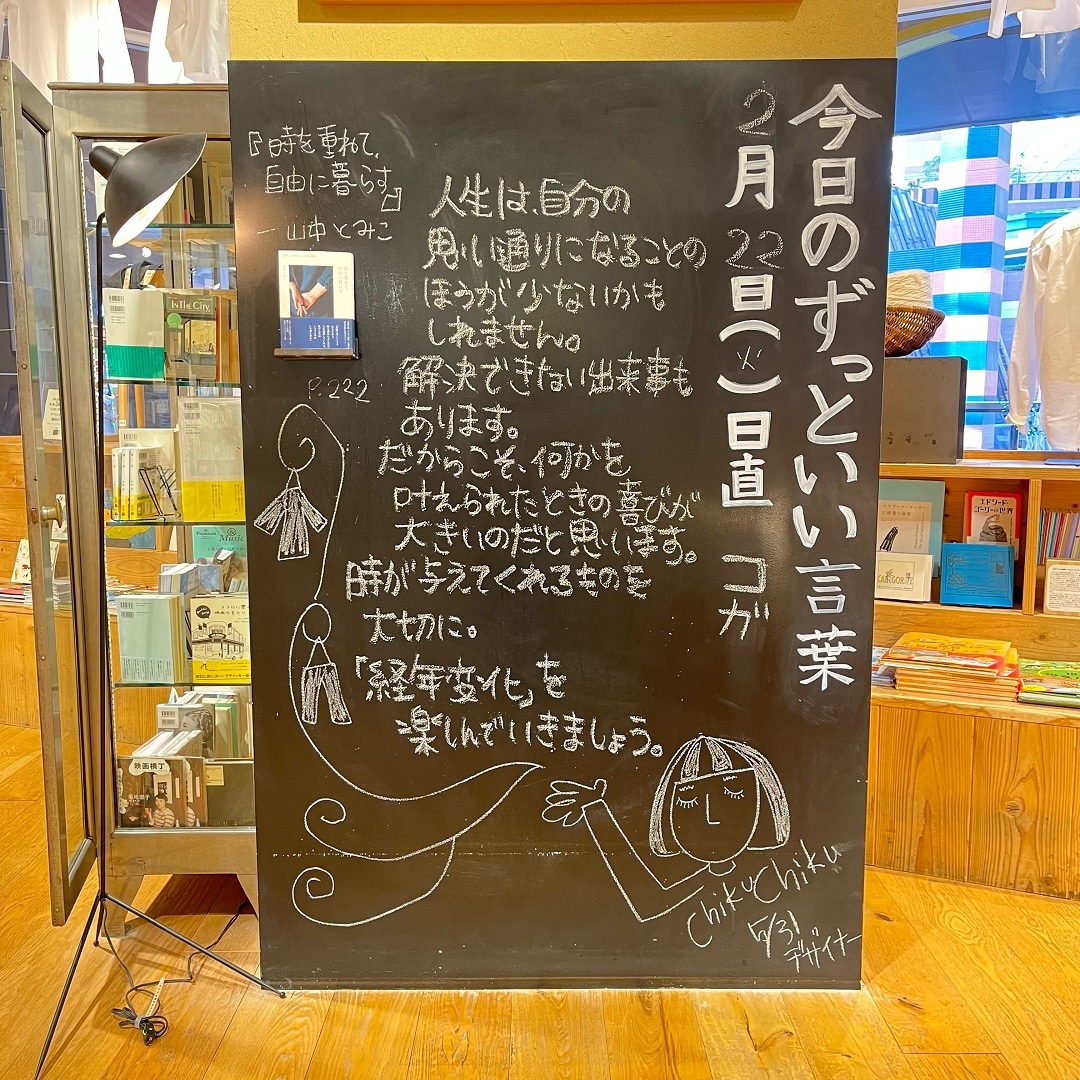 今日のずっといい言葉
2月22日(火)日直 コガ
『時を重ねて、
自由に暮らす』
ー山中とみこ
P.222
人生は、自分の
思い通りになることの
ほうが少ないかも
しれません。
解決できない出来事も
あります。
だからこそ、何かを
叶えられたときの喜びが
大きいのだと思います。
時が与えてくれるものを
大切に。
「経年変化」を
楽しんでいきましょう。
ChikuChiku
5/31
デザイナー
IN THE CITY
Premium
Music
映画横丁
エドワード・
ゴーリーの世界
CATEGORY